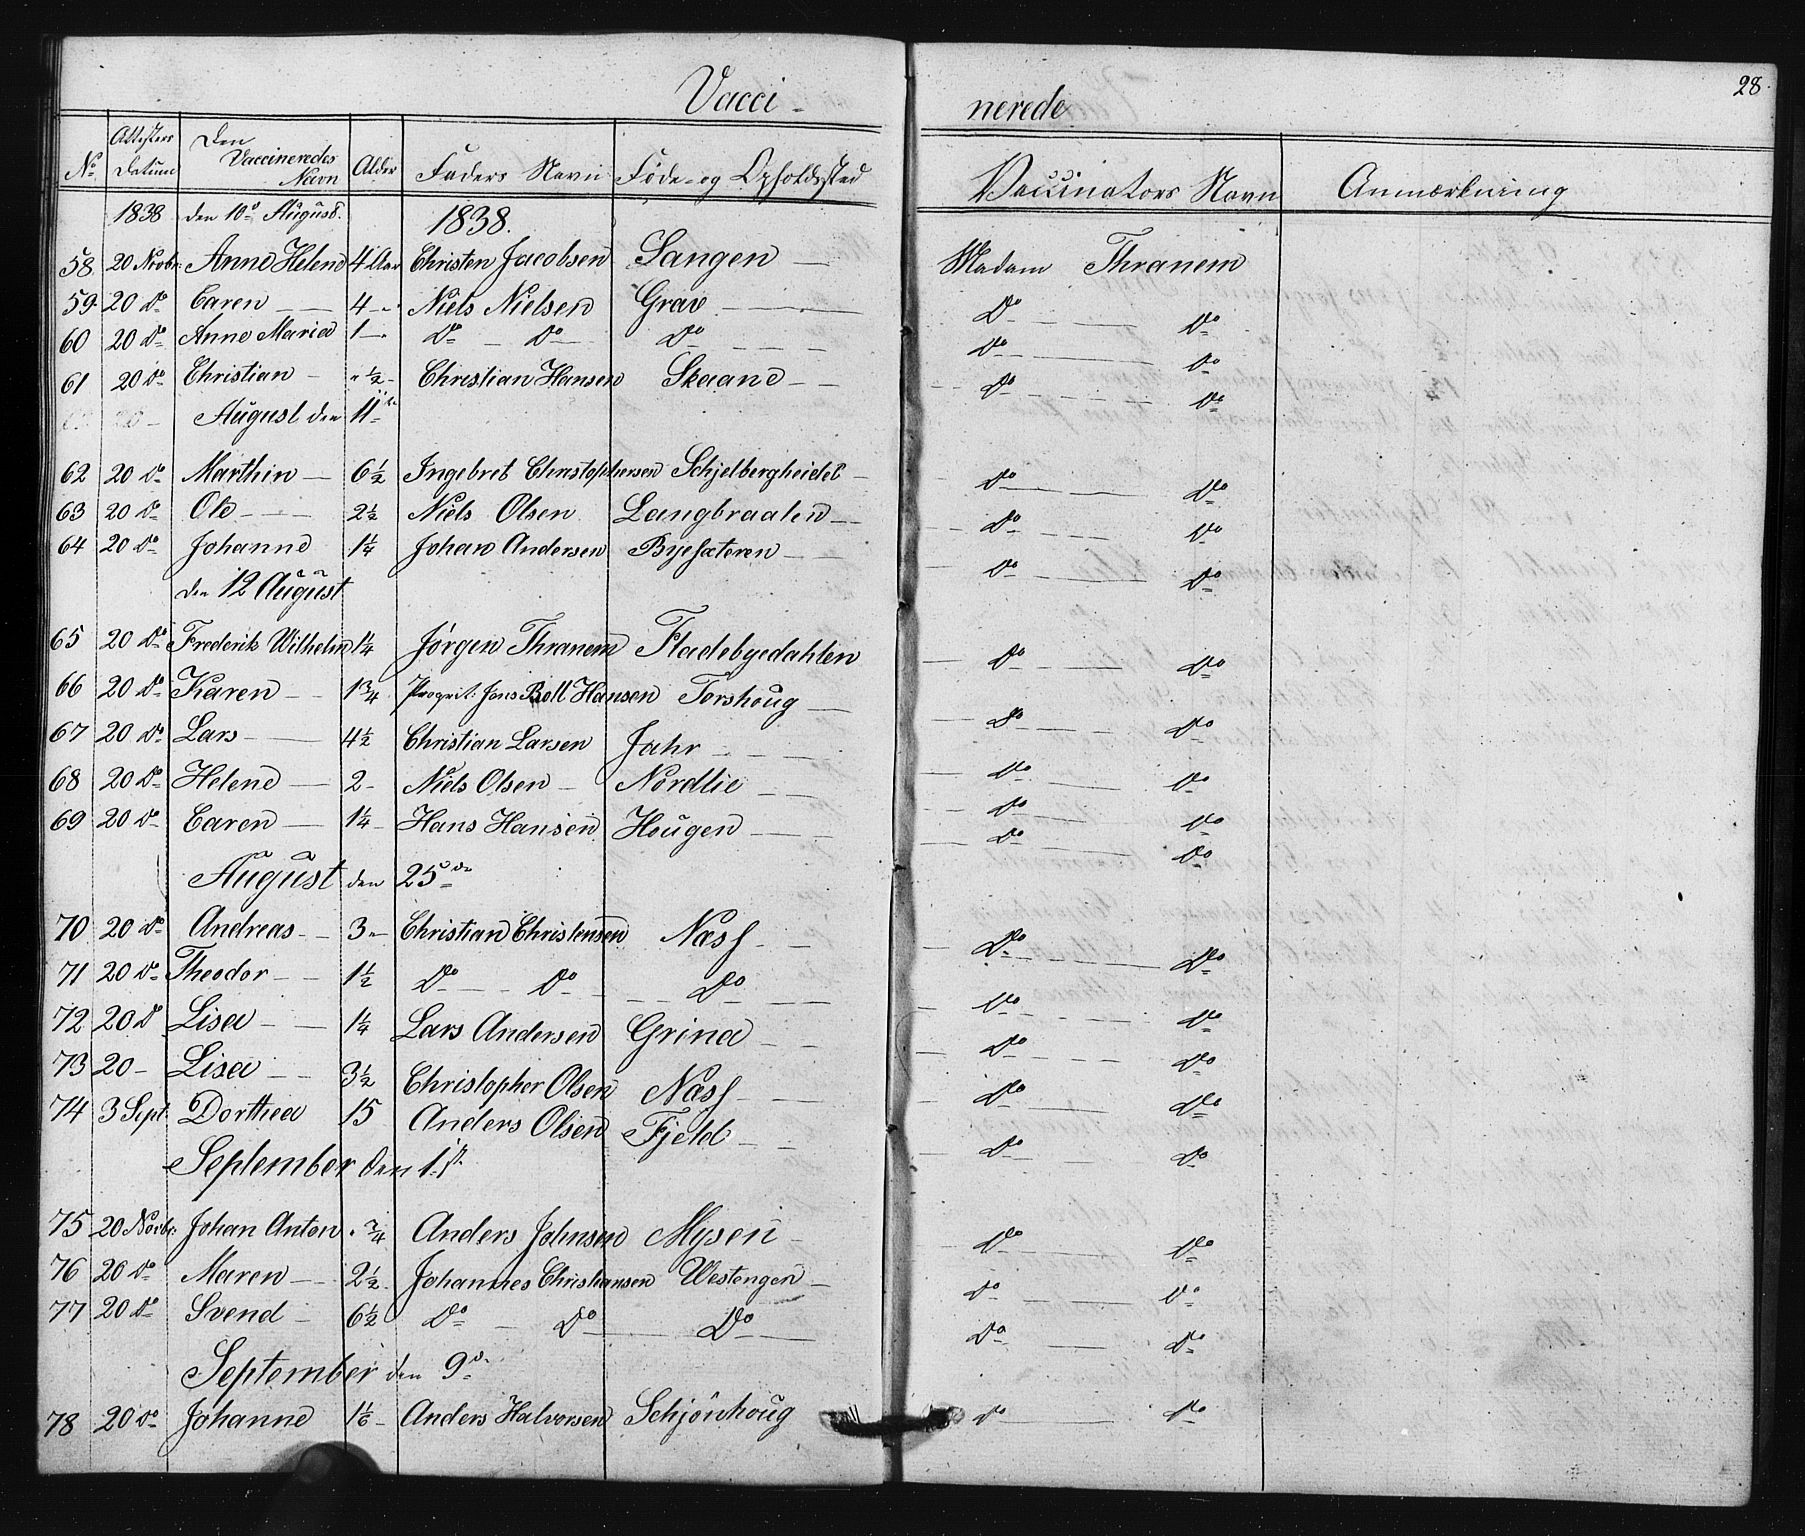 28.
Vacci-nerede
No Attestens Datum Den Vaccineredes Navn Alder Faders Navn Føde- og Opholdssted Vaccinators Navn Anmærkning
1838 den 10de August. 1838.
58 20 Novbr: Anne Helene 4 Aar Christen Jacobsen Langen Madam Thranem
59 20 Do Caren 4 Niels Nielsen Grav Do Do
60 20 Do Anne Maria 1 Do Do Do Do Do
61 20 Do Christian " 1/2 Christian Hansen Skaane Do Do
August den 11te
62 20 Do Marthin 6 1/2 Ingebret Christophersen Schjelbergheidet Do Do
63 20 Do Ole 2 1/2 Niels Olsen Langbraaten Do Do
64 20 Do Johanne 1 1/4 Johan Andersen Byesæteren Do Do
den 12 August
65 20 Do Frederik Wilhelm 1 1/4 Jørgen Thranem Fladebyedahlen Do Do
66 20 Do Karen 1 3/4 Proprit: Jens Boll Hansen Torshoug Do Do
67 20 Do Lars 4 1/2 Christian Larsen Jahr Do Do
68 20 Do Helene 2 Niels Olsen Nordlie Do Do
69 20 Do Caren 1 1/4 Hans Hansen Hougen Do Do
August den 25de
70 20 Do Andreas 3 Christian Christensen Næss Do Do
71 20 Do Theodor 1 1/2 Do Do Do Do Do
72 20 Do Lisa 1 1/4 Lars Andersen Grina Do Do
73 20 Lisa 3 1/2 Christopher Olsen Næss Do Do
74 3 Sept. Dorthea 15 Anders Olsen Fjeld Do Do
September den 1st
75 20 Novbr: Johan Anton " 3/4 Anders Johnsen Mysen Do Do
76 20 Do Maren 2 1/2 Johannes Christiansen Westengen Do Do
77 20 Do Svend 6 1/2 Do Do Do Do Do
September den 9de
78 20 Do Johanne 1 1/6 Anders Halvorsen Schjönhoug Do Do